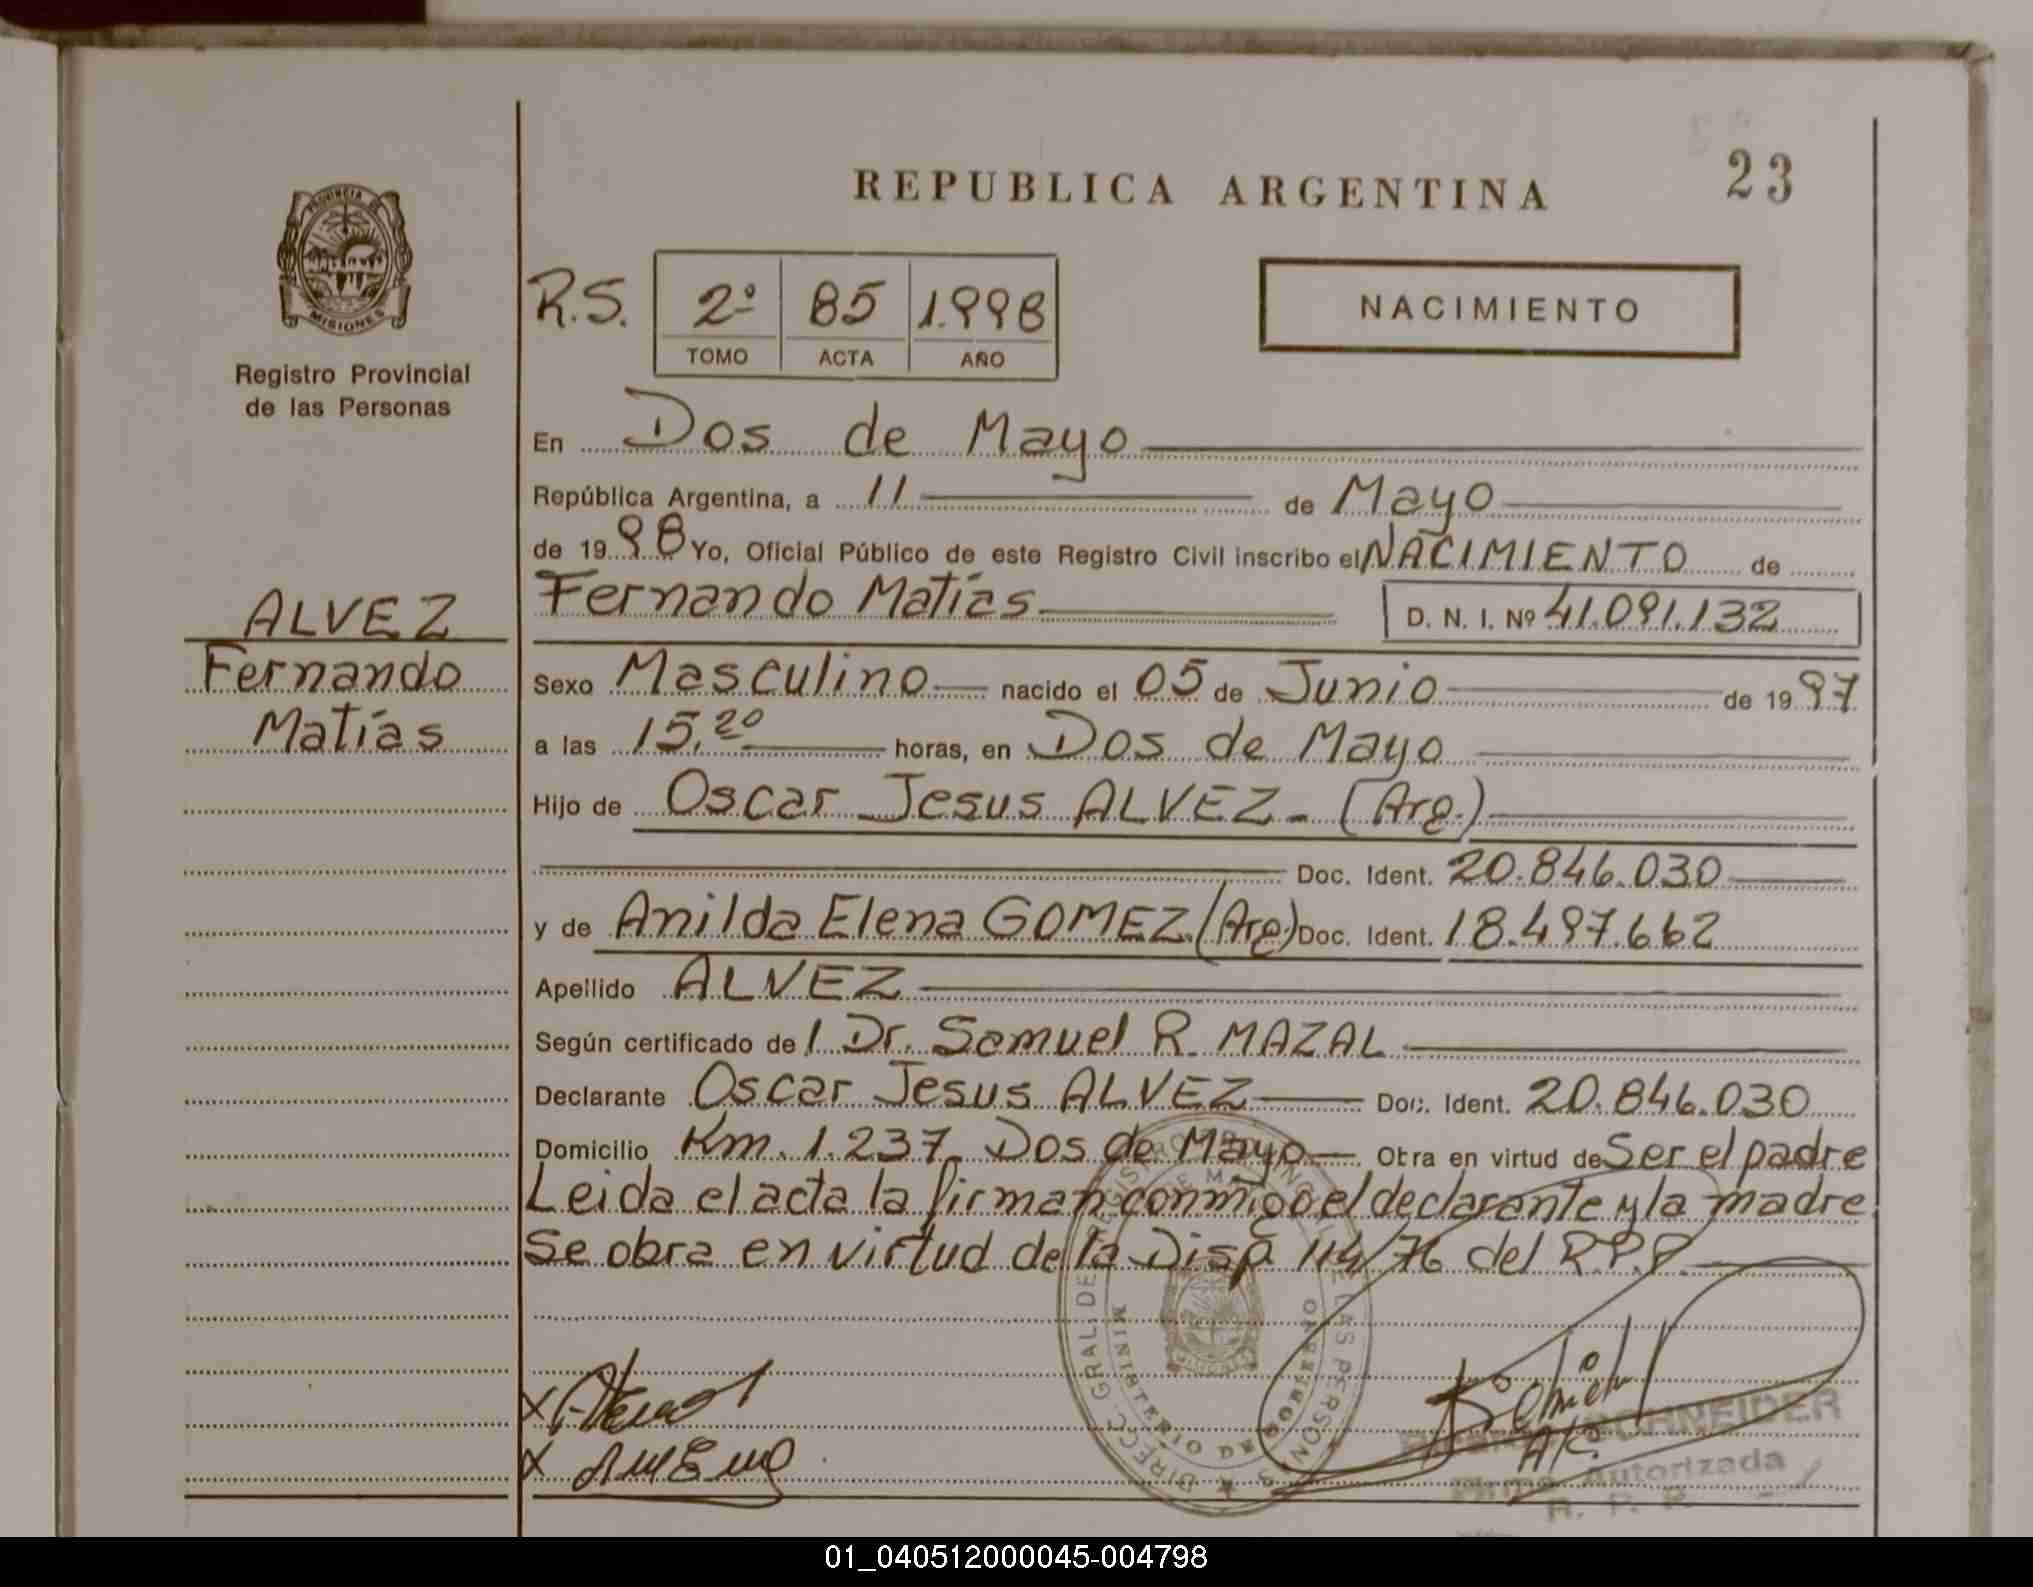 REPUBLICA ARGENTINA
23
PROVINCIA DE
MISIONES
Registro Provincial
de las Personas
R.S.
2º 85 1.998
TOMO ACTA AÑO
NACIMIENTO
En Dos de Mayo
República Argentina, a 11 de Mayo
de 1998 Yo, Oficial Público de este Registro Civil inscribo el NACIMIENTO de
Fernando Matías D. N. I. Nº 41.091.132
ALVEZ
Fernando
Matías
Sexo Masculino nacido el 05 de Junio de 1997
a las 15,20 horas, en Dos de Mayo
Hijo de Oscar Jesus ALVEZ - (Arg.)
Doc. Ident. 20.846.030
y de Anilda Elena GOMEZ (Arg.) Doc. Ident. 18.497.662
Apellido ALVEZ
Según certificado de l Dr. Samuel R. MAZAL
Declarante Oscar Jesus ALVEZ Doc. Ident. 20.846.030
Domicilio Km. 1.237 Dos de Mayo Obra en virtud de Ser el padre
Leida el acta la firman conmigo el declarante y la madre.
Se obra en virtud de la Disp. 114/76 del R.P.P.
DIRECC. GRAL. DE REGISTRO PROVINCIAL DE LAS PERSONAS
MINISTERIO DE GOBIERNO
SCHNEIDER
Firma Autorizada
R. P. P.
01_040512000045-004798